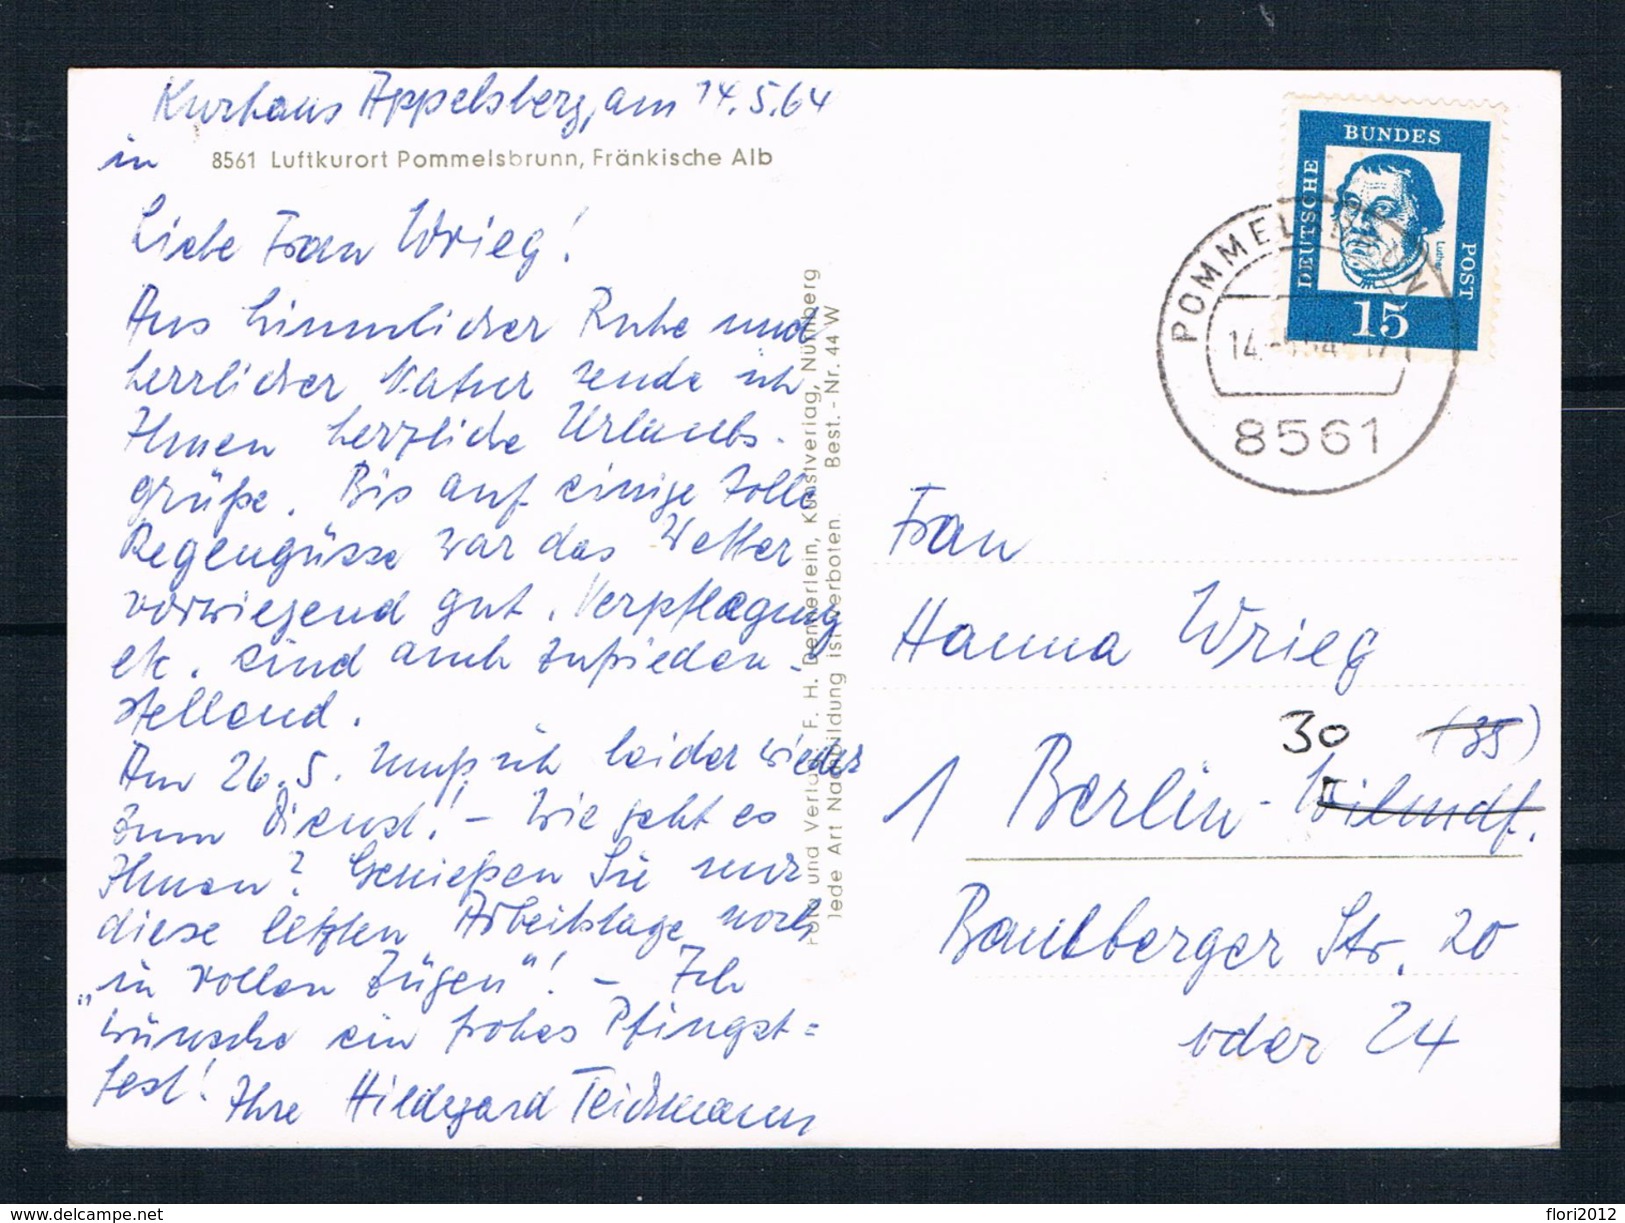 Kurhaus Appelsberg, am 14.5.64
in 8561 Luftkurort Pommelsbrunn, Fränkische Alb
Liebe Frau Wrieg!
Aus himmlischer Ruhe und
herrlicher Natur sende ich
Ihnen herzliche Urlaubs-
grüße. Bis auf einige tolle
Regengüsse war das Wetter
vorwiegend gut. Verpflegung
etc. sind auch zufrieden-
stellend.
Am 26.5. muß ich leider wieder
zum Dienst! – Wie geht es
Ihnen? Genießen Sie nur
diese letzten Arbeitstage noch
„in vollen Zügen"! – Ich
wünsche ein frohes Pfingst=
fest! Ihre Hildegard Teichmann
Foto und Verlag F. H. Dennerlein, Kunstverlag, Nürnberg
Jede Art Nachbildung ist verboten. Best.-Nr. 44 W
DEUTSCHE BUNDES POST
Luther
15
POMMELSBRUNN
8561
Frau
Hanna Wrieg
30 (35)
1 Berlin-Wilmdf.
Str. 20
oder 24
www.delcampe.net
flori2012